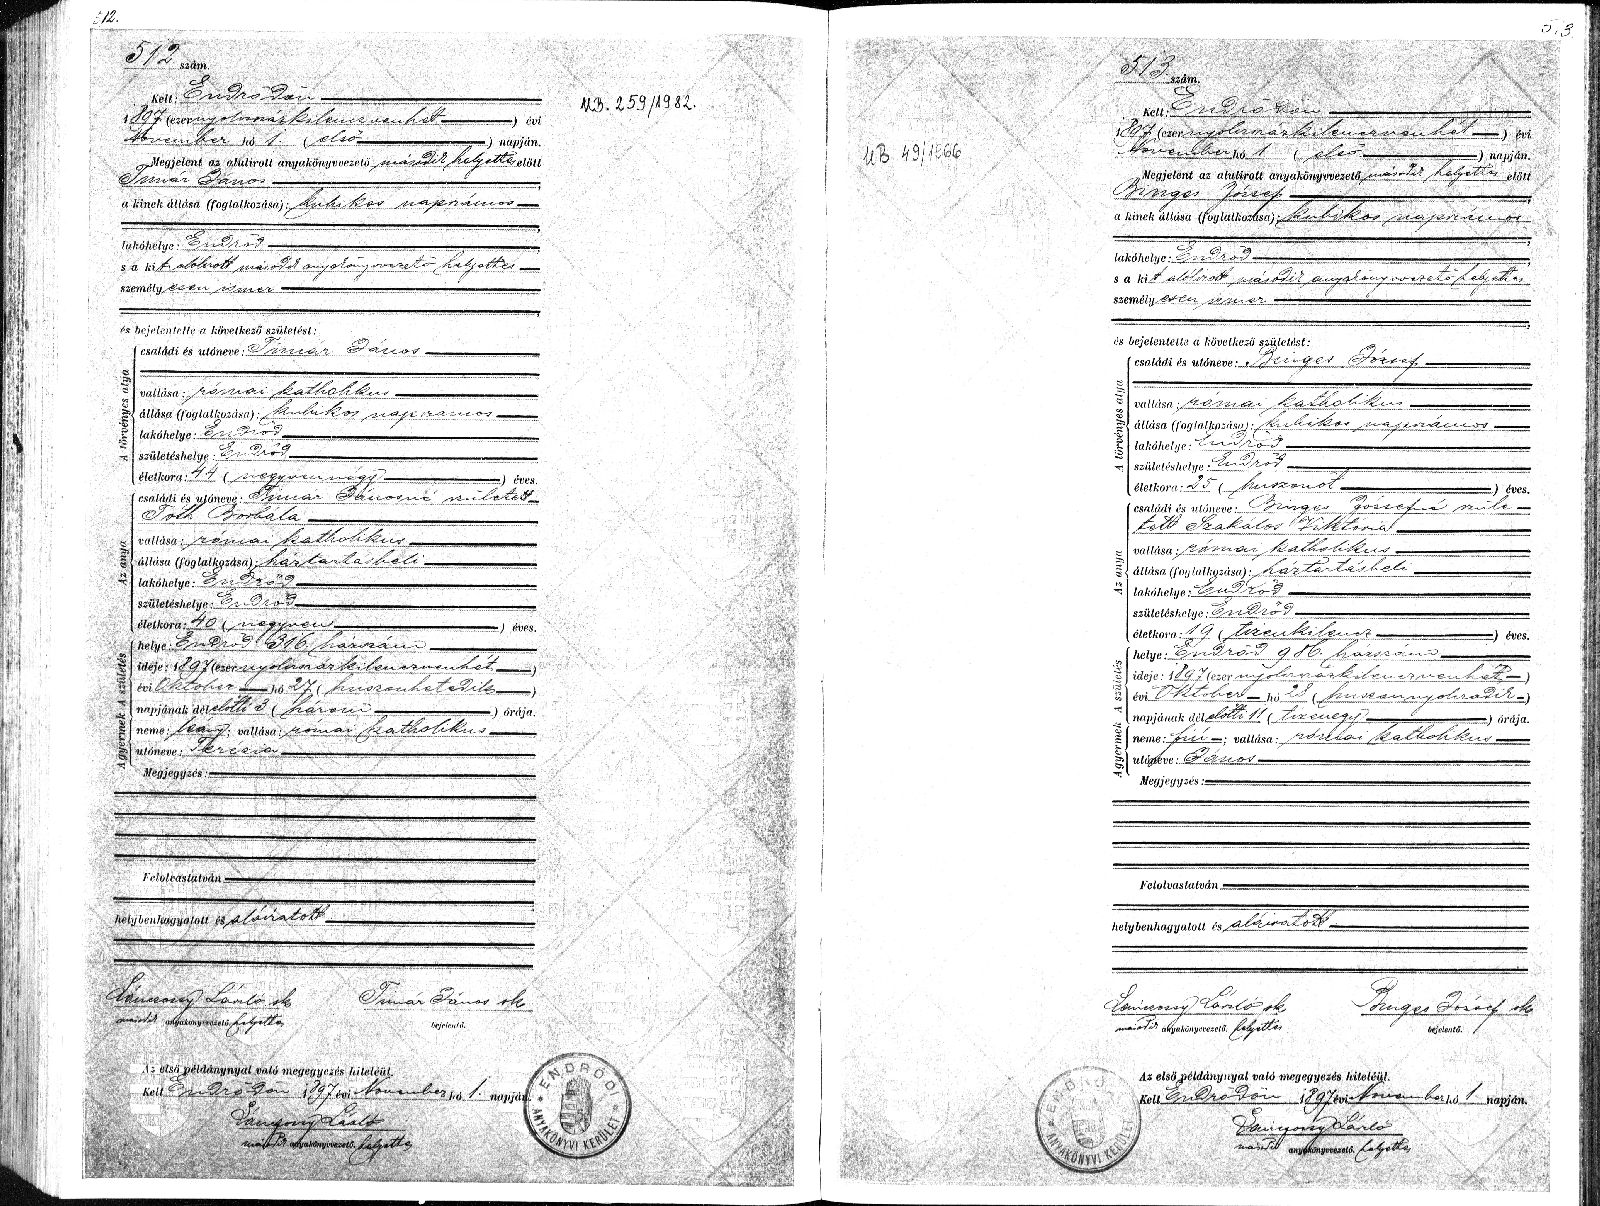 512.
512 szám.
Kelt: Endrődön
1897 (ezernyolczszázkilenczvenhét) évi
November hó 1. (első) napján.
Megjelent az alulirott anyakönyvvezető második helyettes előtt
Timár János
a kinek állása (foglalkozása): kubikos napszámos
lakóhelye: Endrőd
s a kit alolirott második anyakönyvvezető helyettes
személyesen ismer
és bejelentette a következő születést:
A törvényes atyja
családi és utóneve: Timár János
vallása: római katholikus
állása (foglalkozása): kubikos napszámos
lakóhelye: Endrőd
születéshelye: Endrőd
életkora: 44 (negyvennégy) éves.
Az anya
családi és utóneve: Timár Jánosné született
Tóth Borbála
vallása: római katholikus
állása (foglalkozása): háztartásbeli
lakóhelye: Endrőd
születéshelye: Endrőd
életkora: 40 (negyven) éves.
A születés
helye: Endrőd 316 házszám
ideje: 1897 (ezernyolczszázkilenczvenhét)
évi Október hó 27 (huszonhetedik)
napjának délelőtti 3 (három) órája.
A gyermek
neme: leány; vallása: római katholikus
utóneve: Terézia
Megjegyzés:
Felolvastatván
helybenhagyatott és aláíratott
László sk
Timár János sk
második anyakönyvvezető. helyettes
bejelentő.
Az első példánynyal való megegyezés hiteléül.
Kelt Endrődön 1897 évi November hó 1. napján.
László
második anyakönyvvezető. helyettes
ENDRŐDI ANYAKÖNYVI KERÜLET
UB. 259/1982.
513
513 szám.
Kelt: Endrődön
1897 (ezernyolczszázkilenczvenhét) évi
November hó 1 (első) napján.
Megjelent az alulirott anyakönyvvezető, második helyettes előtt
Binges József
a kinek állása (foglalkozása): kubikos napszámos
lakóhelye: Endrőd
s a kit alolirott második anyakönyvvezető helyettes
személyesen ismer
és bejelentette a következő születést:
A törvényes atyja
családi és utóneve: Binges József
vallása: római katholikus
állása (foglalkozása): kubikos napszámos
lakóhelye: Endrőd
születéshelye: Endrőd
életkora: 25 (huszonöt) éves.
Az anya
családi és utóneve: Binges Józsefné szüle-
tett Szakálos Viktória
vallása: római katholikus
állása (foglalkozása): háztartásbeli
lakóhelye: Endrőd
születéshelye: Endrőd
életkora: 19 (tizenkilencz) éves.
A születés
helye: Endrőd 986 házszám
ideje: 1897 (ezernyolczszázkilenczvenhét)
évi Október hó 28 (huszonnyolczadik)
napjának délelőtti 11 (tizenegy) órája.
A gyermek
neme: fiú; vallása: római katholikus
utóneve: János
Megjegyzés:
Felolvastatván
helybenhagyatott és aláíratott
László sk
Binges József sk
második anyakönyvvezető. helyettes
bejelentő.
Az első példánynyal való megegyezés hiteléül.
Kelt Endrődön 1897 évi November hó 1 napján.
László
második anyakönyvvezető. helyettes
ENDRŐDI ANYAKÖNYVI KERÜLET
UB 49/1966